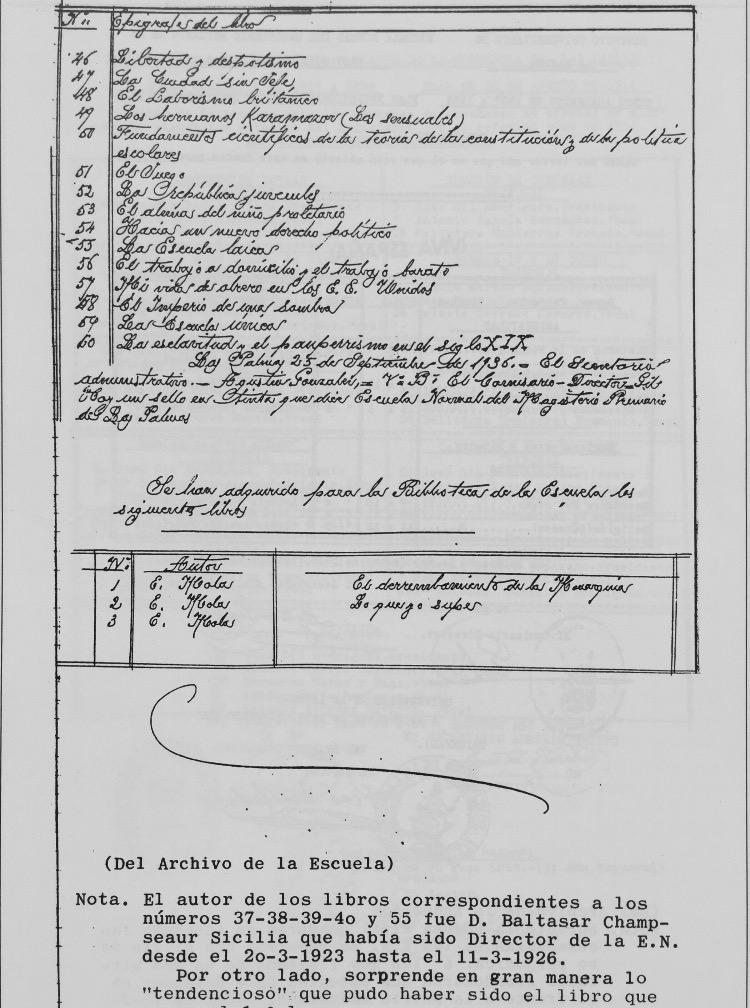 Nº: Epígrafes del libro
46 Libertad y despotismo
47 La Ciudad sin Jefe
48 El Laborismo británico
49 Los hermanos Karamazov (Los sensuales)
50 Fundamentos científicos de la teoría de la constitución y de la política
escolares
51 El Fuego
52 La República juvenil
53 El alma del niño proletario
54 Hacia un nuevo derecho político
55 La Escuela laica
56 El trabajo a domicilio y el trabajo barato
57 Mi vida de obrero en los E. E. Unidos
58 El Imperio de una sombra
59 La Escuela única
60 La esclavitud y el pauperismo en el siglo XIX
La Palma 25 de Septiembre de 1936.= El Secretario
administrativo.- Agustín González,= Vº Bº: El Comisario-Director=
Hay un sello en tinta que dice Escuela Normal del Magisterio Primario
de La Palma
Se han adquirido para la Biblioteca de la Escuela los
siguientes libros
Nº: Autor
1 E. Mola El derrumbamiento de la Monarquía
2 E. Mola Lo que yo supe
3 E. Mola
(Del Archivo de la Escuela)
Nota. El autor de los libros correspondientes a los
números 37-38-39-4o y 55 fue D. Baltasar Champ-
seaur Sicilia que había sido Director de la E.N.
desde el 2o-3-1923 hasta el 11-3-1926.
Por otro lado, sorprende en gran manera lo
"tendencioso" que pudo haber sido el libro que